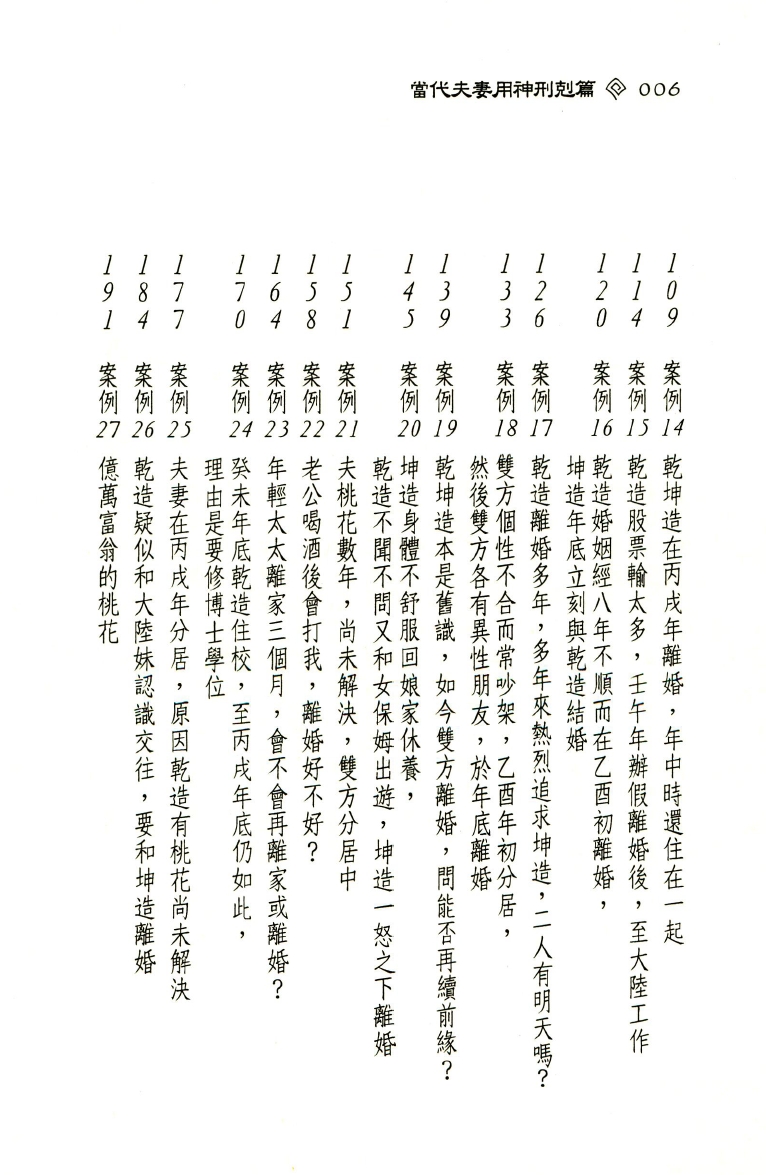 當代夫妻用神刑剋篇 006
109 案例14 乾坤造在丙戌年離婚，年中時還住在一起
114 案例15 乾造股票輸太多，壬午年辦假離婚後，至大陸工作
120 案例16 乾造婚姻經八年不順而在乙酉初離婚，
坤造年底立刻與乾造結婚
126 案例17 乾造離婚多年，多年來熱烈追求坤造，二人有明天嗎？
133 案例18 雙方個性不合而常吵架，乙酉年初分居，
然後雙方各有異性朋友，於年底離婚
139 案例19 乾坤造本是舊識，如今雙方離婚，問能否再續前緣？
145 案例20 坤造身體不舒服回娘家休養，
乾造不聞不問又和女保姆出遊，坤造一怒之下離婚
151 案例21 夫桃花數年，尚未解決，雙方分居中
158 案例22 老公喝酒後會打我，離婚好不好？
164 案例23 年輕太太離家三個月，會不會再離家或離婚？
170 案例24 癸未年底乾造住校，至丙戌年底仍如此，
理由是要修博士學位
177 案例25 夫妻在丙戌年分居，原因乾造有桃花尚未解決
184 案例26 乾造疑似和大陸妹認識交往，要和坤造離婚
191 案例27 億萬富翁的桃花